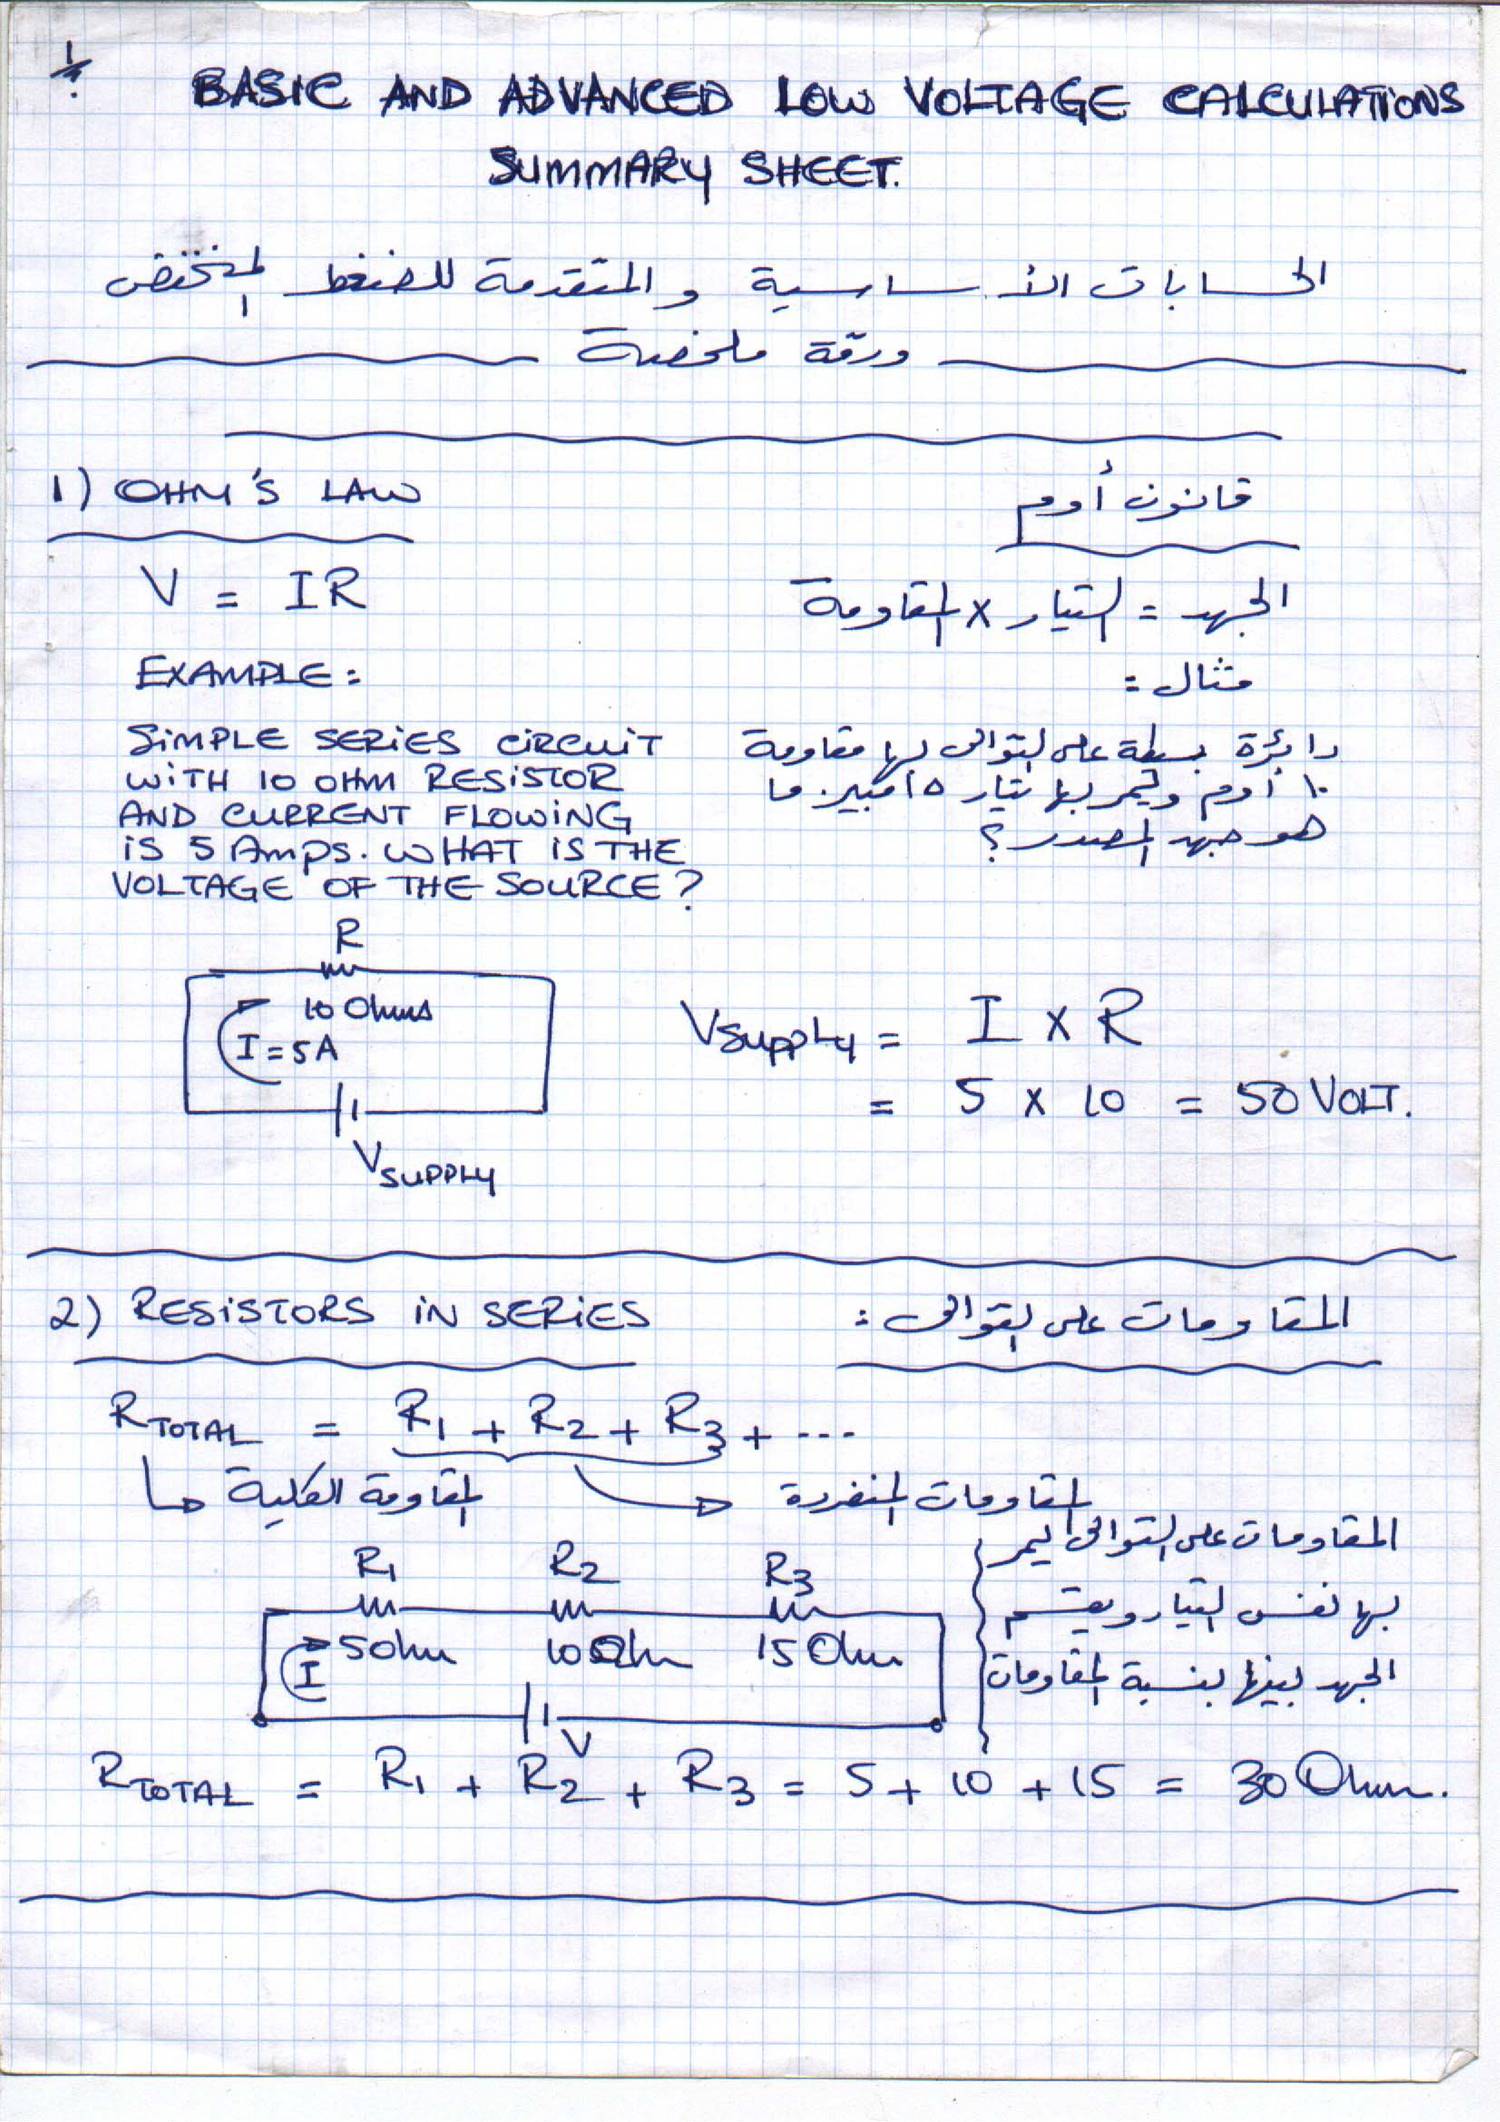 1/
BASIC AND ADVANCED LOW VOLTAGE CALCULATIONS
SUMMARY SHEET.
الحسابات الأساسية والمتقدمة للضغط المنخفض
ورقة ملخصة
1) OHM'S LAW
قانون أوم
V = IR
الجهد = التيار × المقاومة
EXAMPLE:
مثال:
SIMPLE SERIES CIRCUIT
WITH 10 OHM RESISTOR
AND CURRENT FLOWING
IS 5 Amps. WHAT IS THE
VOLTAGE OF THE SOURCE?
دائرة بسيطة على التوالى لها مقاومة
١٠ أوم ويمر بها تيار ٥ أمبير. ما
هو جهد المصدر؟
R
10 Ohms
I = 5A
VSUPPLY
VSUPPLY = I X R
= 5 X 10 = 50 VOLT.
2) RESISTORS IN SERIES
المقاومات على التوالى:
RTOTAL = R1 + R2 + R3 + ...
المقاومة الكلية
المقاومات المنفردة
R1 R2 R3
5 Ohm 10 Ohm 15 Ohm
I
V
المقاومات على التوالى يمر
بها نفس التيار ويقسم
الجهد بينها بنسبة المقاومات
RTOTAL = R1 + R2 + R3 = 5 + 10 + 15 = 30 Ohm.